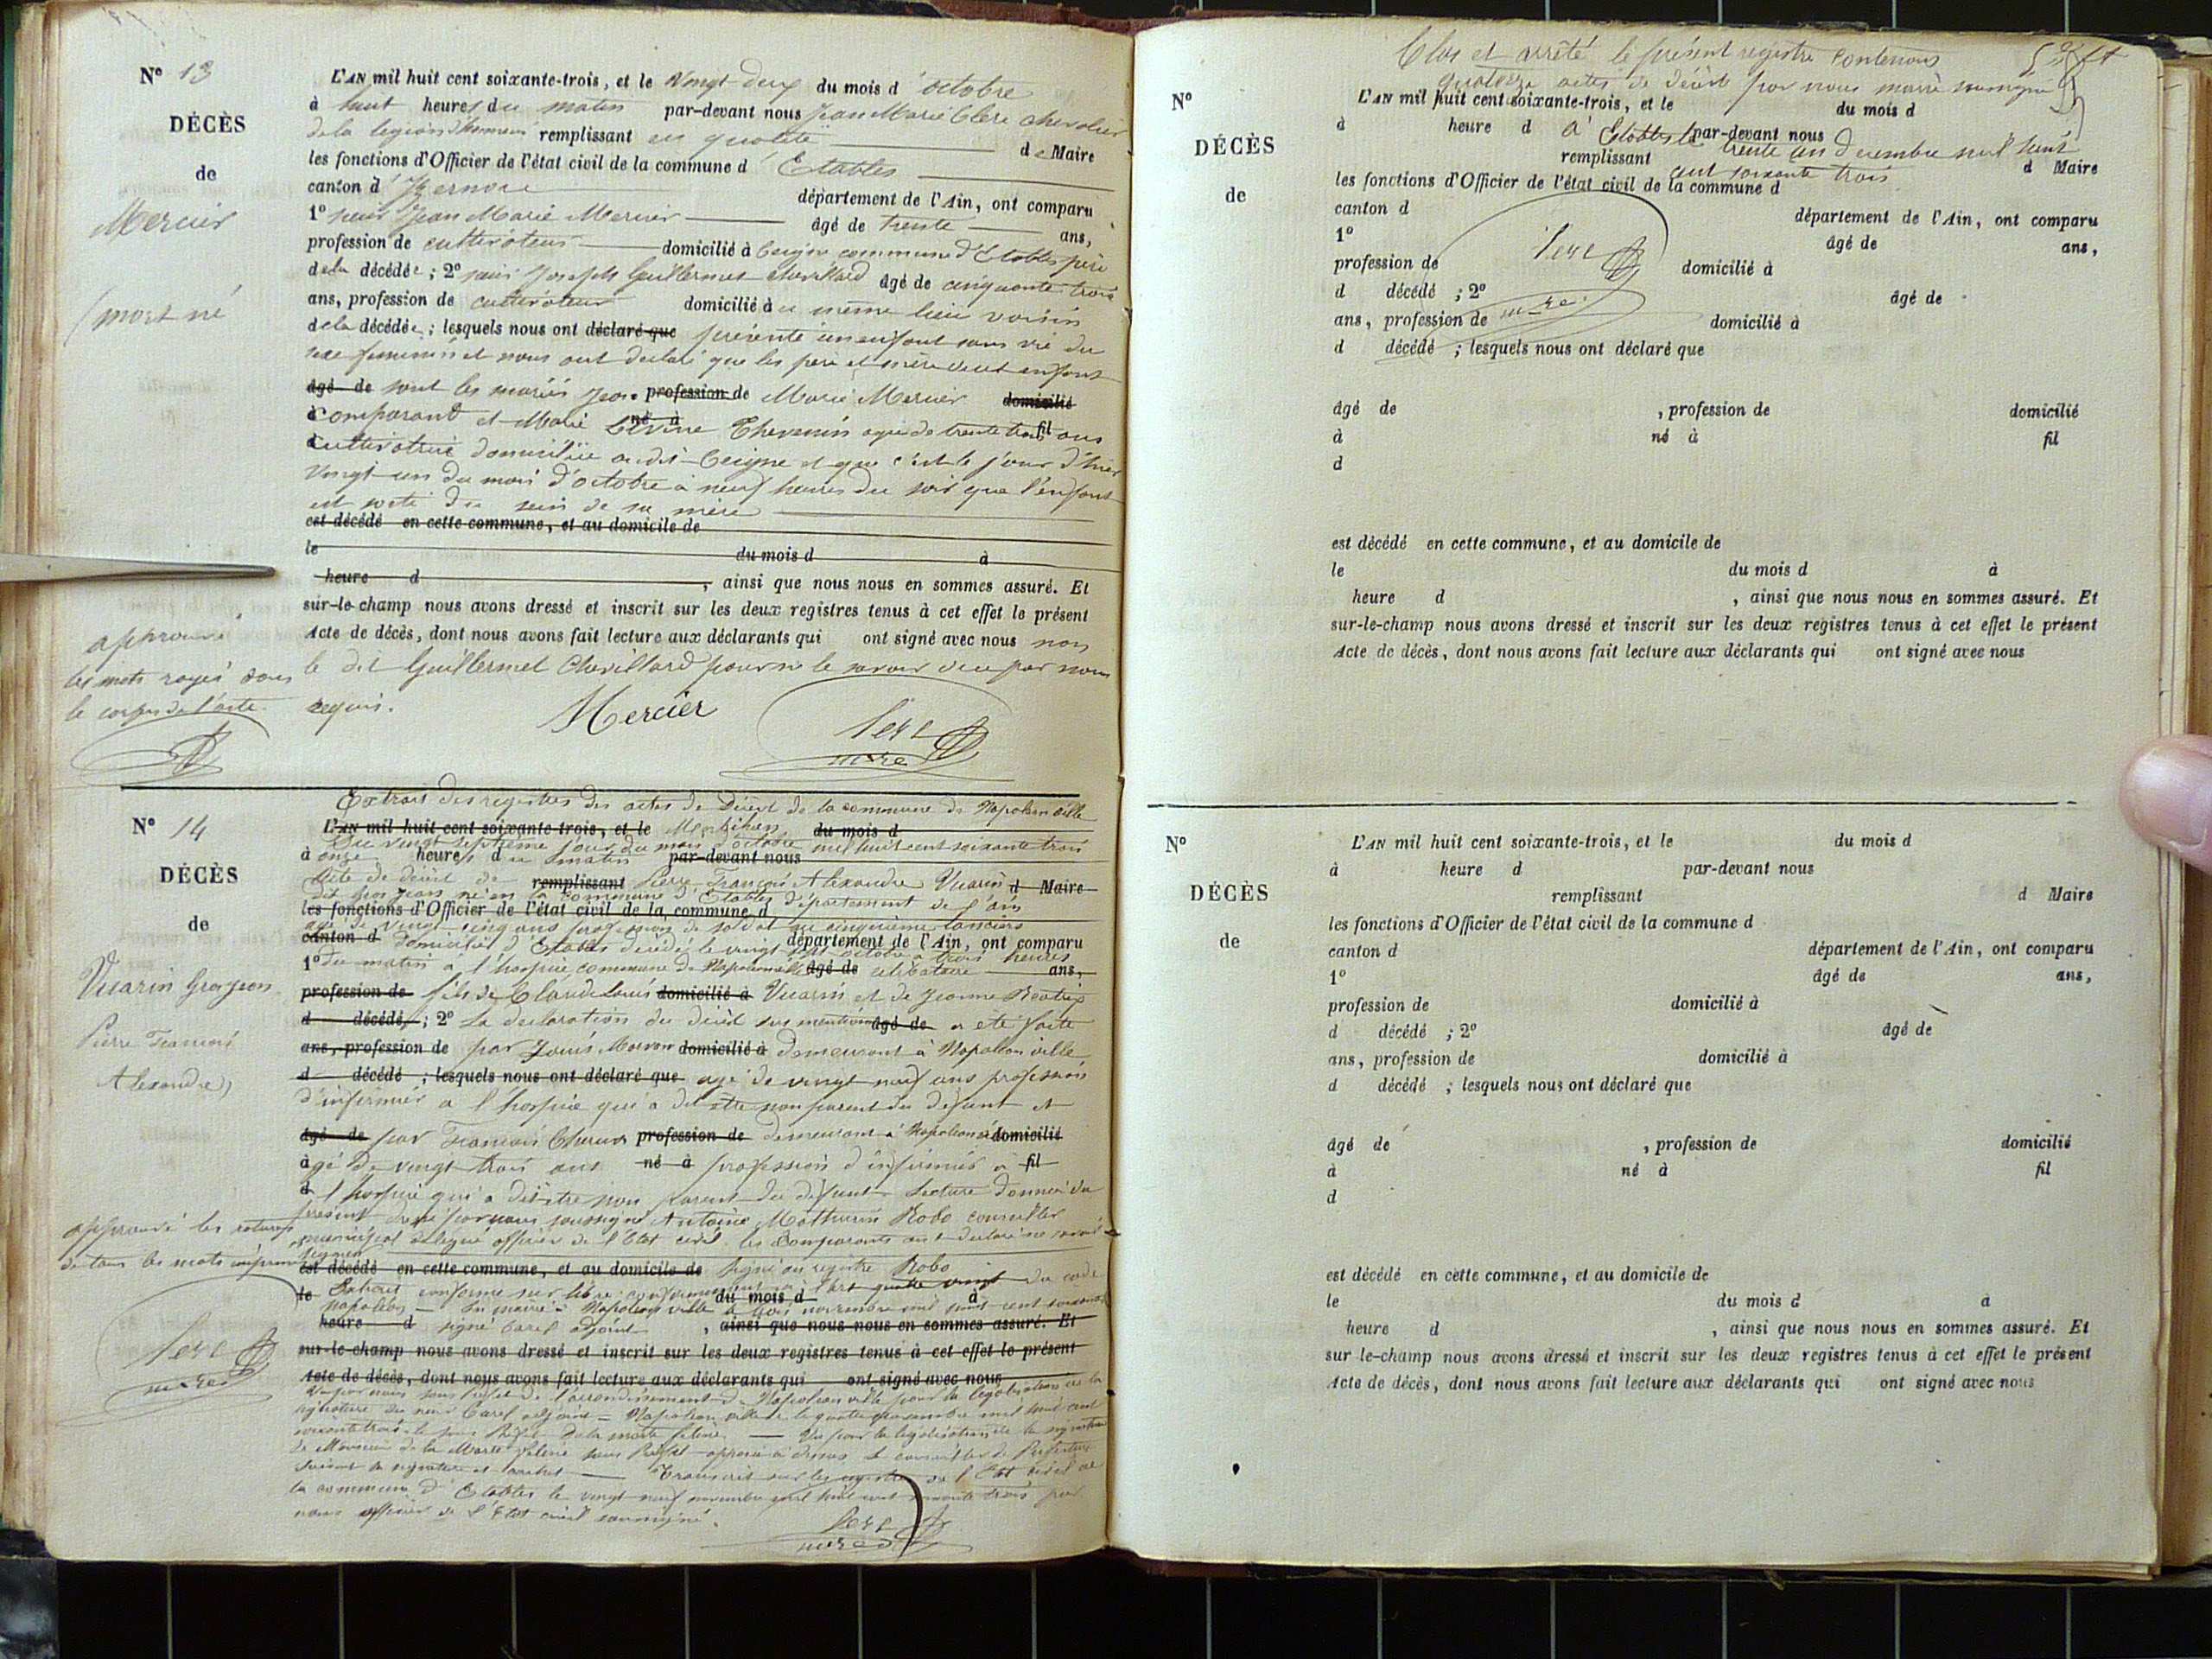 N° 13
DÉCÈS
de
Mercier
(mort né
L'AN mil huit cent soixante-trois, et le Vingt deux du mois d'octobre
à huit heures du matin par-devant nous Jean Marie Clerc chevalier
de la legion d'honneur remplissant en qualité de Maire
les fonctions d'Officier de l'état civil de la commune d'Etables
canton d' département de l'Ain, ont comparu
1° sieur Jean Marie Mercier âgé de trente ans,
profession de cultivateur domicilié à Ceigne commune d'Etables père
de la décédée ; 2° sieur Joseph Guillermet Chevillard âgé de cinquante trois
ans, profession de cultivateur domicilié à même lieu voisin
de la décédée ; lesquels nous ont déclaré que présenté un enfant sans vie du
sexe feminin et nous ont declaré que les père et mère enfant
âgé de sont les mariés Jean profession de Marie Mercier domicilié
à comparant et Marie né à Thevenin agée de trente trois fil ans
cultivatrice domiciliée audit Ceigne et que c'est le jour d'hier
vingt un du mois d'octobre à neuf heures du soir que l'enfant
est sorti du sein de sa mère
est décédé en cette commune, et au domicile de
le du mois d à
heure d , ainsi que nous nous en sommes assuré. Et
sur-le-champ nous avons dressé et inscrit sur les deux registres tenus à cet effet le présent
Acte de décès, dont nous avons fait lecture aux déclarants qui ont signé avec nous non
le dit Guillermet Chevillard pour ne le savoir par nous
requis.
approuvé
les mots rayés dans
le corps de l'acte
Mercier
Clerc
maire
N° 14
DÉCÈS
de
Vuarin Grosjean
Pierre François
Alexandre
Extrait des registres des actes de Décès de la commune de Napoléonville
L'AN mil huit cent soixante-trois, et le Morbihan du mois d
Du vingt septième jour du mois d'octobre mil huit cent soixante trois
à onze heures du matin par-devant nous
Acte de décès de remplissant Pierre François Alexandre Vuarin d Maire
dit Gros Jean né en la commune d'Etables département de l'ain
les fonctions d'Officier de l'état civil de la commune d
agé de vingt cinq ans profession de soldat au cinquième lanciers
canton d domicilié d'Etables décédé le vingt octobre à trois heures
département de l'Ain, ont comparu
1° du matin à l'hospice commune de Napoleonville âgé de célibataire ans,
profession de fils de Claude Louis domicilié à Vuarin et de Jeanne Beatrix
d décédé ; 2° La declaration du décès sus mentionné âgé de a été faite
ans, profession de par Louis domicilié à demeurant à Napoléonville
d décédé ; lesquels nous ont déclaré que agé de vingt neuf ans profession
d'infirmier à l'hospice qui a dit etre non parent du defunt et
âgé de par François profession de demeurant à Napoleonville domicilié
âgé de vingt trois ans né à profession d'infirmier à fil
d l'hospice qui a dit etre non parent du defunt Lecture donnée du
présent dressé par nous soussigné Antoine Mathurin Robo conseiller
municipal delegué officier de l'Etat civil les comparants ont declaré ne savoir
signer
est décédé en cette commune, et au domicile de signé au registre Robo
le Extrait conforme du mois d à du code
Napoléon En mairie à Napoleonville le trois novembre mil huit cent soixante
heure d signé Carel adjoint , ainsi que nous nous en sommes assuré. Et
sur-le-champ nous avons dressé et inscrit sur les deux registres tenus à cet effet le présent
Acte de décès, dont nous avons fait lecture aux déclarants qui ont signé avec nous
Vu par nous sous Préfet de l'arrondissement de Napoleonville pour la legalisation de la
signature du sieur Carel adjoint Napoleonville le quatre novembre mil huit cent
soixante trois le sous Préfet Vu pour la legalisation de la signature
de Monsieur de la sous Préfet apposée ci dessus Le conseiller de Prefecture
Transcrit sur les registres de l'Etat civil de
la commune d'Etables le vingt neuf novembre mil huit cent soixante trois par
nous officier de l'Etat civil soussigné.
approuvé les ratures
de tous les mots imprimés
Clerc
maire
Clerc
maire
Clos et arrêté le présent registre contenant
quatorze actes de décès par nous maire soussigné
à Etables le trente un decembre mil huit
cent soixante trois
Clerc
maire
N°
DÉCÈS
de
L'AN mil huit cent soixante-trois, et le du mois d
à heure d par-devant nous
remplissant d Maire
les fonctions d'Officier de l'état civil de la commune d
canton d département de l'Ain, ont comparu
1° âgé de ans,
profession de domicilié à
d décédé ; 2° âgé de
ans, profession de domicilié à
d décédé ; lesquels nous ont déclaré que
âgé de , profession de domicilié
à né à fil
d
est décédé en cette commune, et au domicile de
le du mois d à
heure d , ainsi que nous nous en sommes assuré. Et
sur-le-champ nous avons dressé et inscrit sur les deux registres tenus à cet effet le présent
Acte de décès, dont nous avons fait lecture aux déclarants qui ont signé avec nous
N°
DÉCÈS
de
L'AN mil huit cent soixante-trois, et le du mois d
à heure d par-devant nous
remplissant d Maire
les fonctions d'Officier de l'état civil de la commune d
canton d département de l'Ain, ont comparu
1° âgé de ans,
profession de domicilié à
d décédé ; 2° âgé de
ans, profession de domicilié à
d décédé ; lesquels nous ont déclaré que
âgé de , profession de domicilié
à né à fil
d
est décédé en cette commune, et au domicile de
le du mois d à
heure d , ainsi que nous nous en sommes assuré. Et
sur-le-champ nous avons dressé et inscrit sur les deux registres tenus à cet effet le présent
Acte de décès, dont nous avons fait lecture aux déclarants qui ont signé avec nous